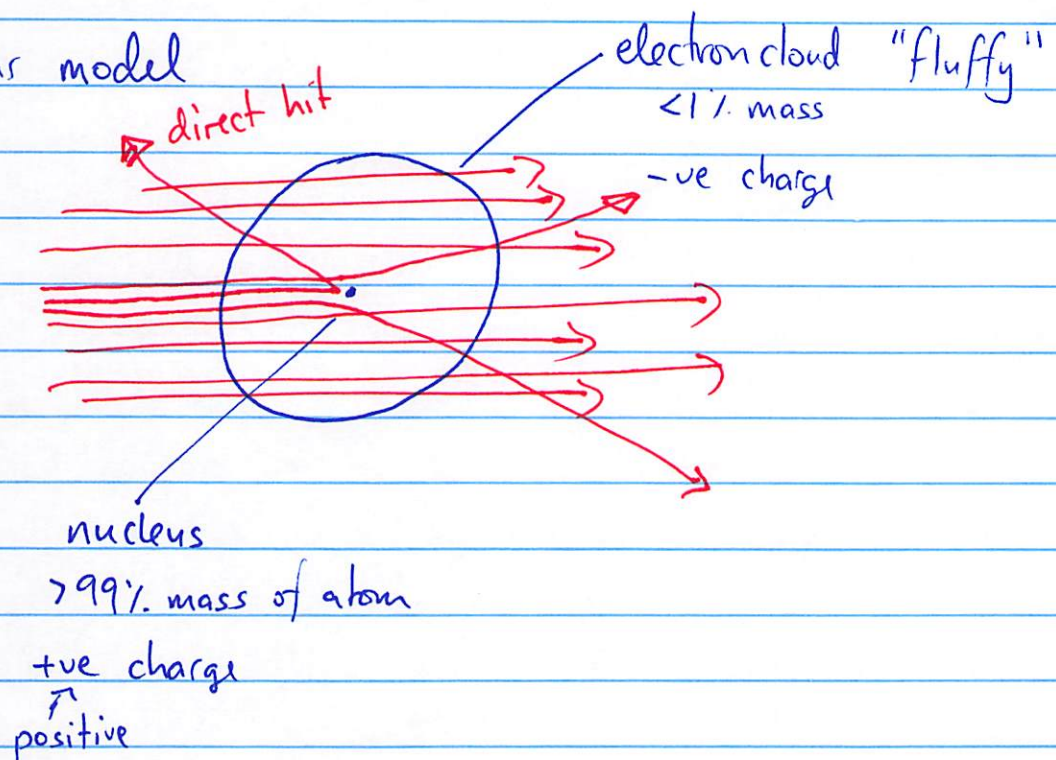 model
direct hit
electron cloud "fluffy"
<1% mass
-ve charge
nucleus
>99% mass of atom
+ve charge
positive